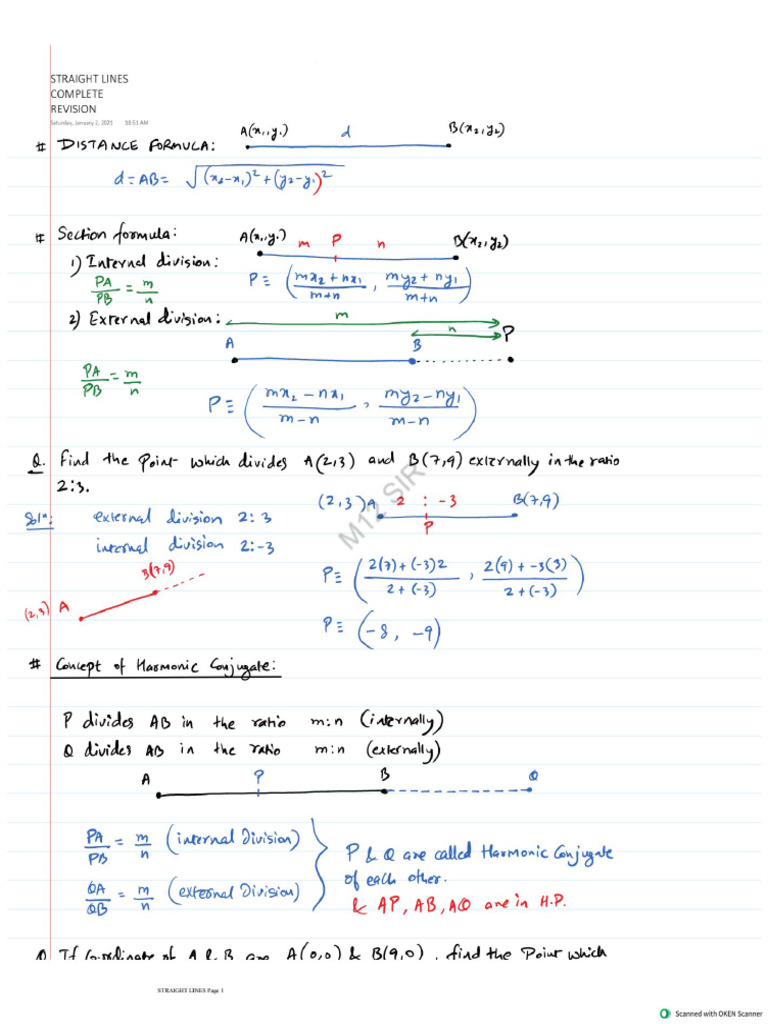 STRAIGHT LINES
COMPLETE
REVISION
Saturday, January 2, 2021 10:51 AM
A(x₁,y₁) d B(x₂,y₂)
# DISTANCE FORMULA:
d = AB = √((x₂-x₁)² + (y₂-y₁)²)
# Section formula: A(x₁,y₁) m P n B(x₂,y₂)
1) Internal division: P ≡ ((mx₂+nx₁)/(m+n), (my₂+ny₁)/(m+n))
PA/PB = m/n
2) External division: m
n P
A B
PA/PB = m/n
P ≡ ((mx₂-nx₁)/(m-n), (my₂-ny₁)/(m-n))
Q. Find the Point which divides A(2,3) and B(7,9) externally in the ratio
2:3.
(2,3)A 2 : -3 B(7,9)
P
Solⁿ: external division 2:3
internal division 2:-3
B(7,9)
(2,3) A
P ≡ ((2(7)+(-3)2)/(2+(-3)), (2(9)+-3(3))/(2+(-3)))
P ≡ (-8, -9)
M12 SIR
# Concept of Harmonic Conjugate:
P divides AB in the ratio m:n (internally)
Q divides AB in the ratio m:n (externally)
A P B Q
PA/PB = m/n (internal Division)
QA/QB = m/n (external Division)
P & Q are called Harmonic Conjugate
of each other.
& AP, AB, AQ are in H.P.
Q If Coordinate of A & B are A(0,0) & B(9,0), find the Point which
STRAIGHT LINES Page 1
Scanned with OKEN Scanner